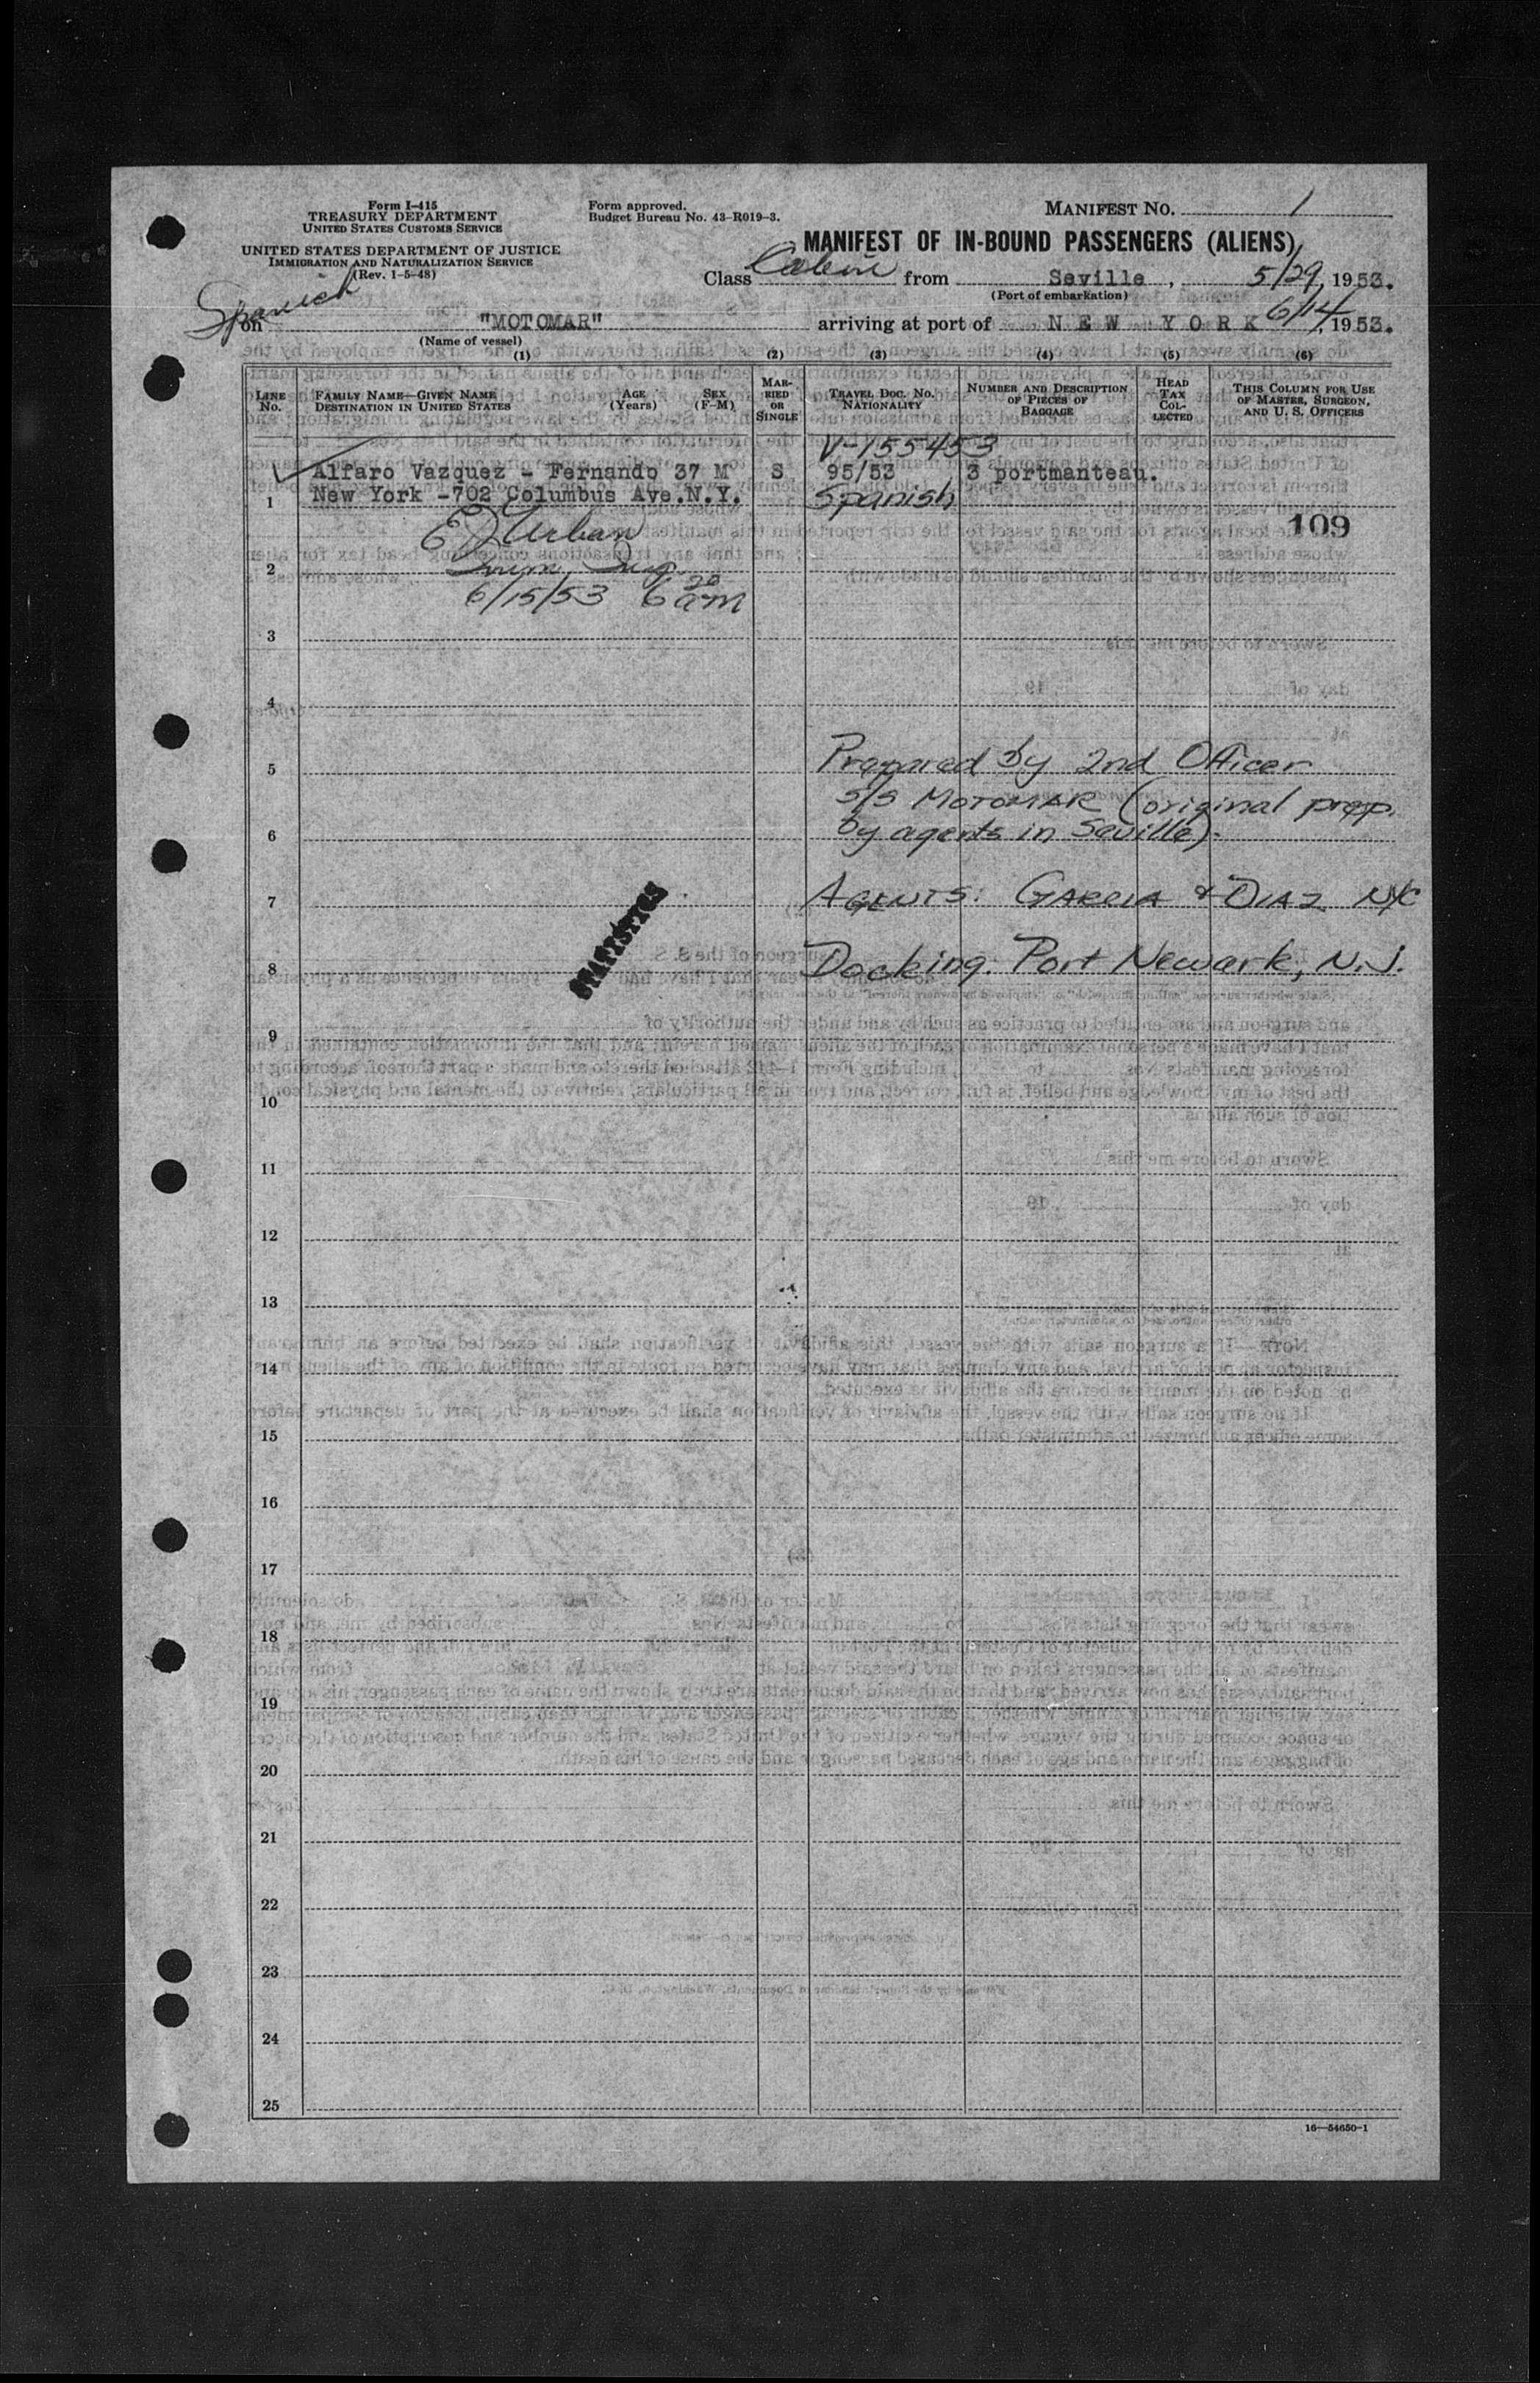 Form I-415
TREASURY DEPARTMENT
UNITED STATES CUSTOMS SERVICE
UNITED STATES DEPARTMENT OF JUSTICE
IMMIGRATION AND NATURALIZATION SERVICE
(Rev. 1-5-48)
Form approved.
Budget Bureau No. 43-R019-3.
MANIFEST NO. 1
MANIFEST OF IN-BOUND PASSENGERS (ALIENS)
Class Cabin from Seville, 5/29, 1953.
(Port of embarkation)
Spanish
on "MOTOMAR" arriving at port of NEW YORK 6/14, 1953.
(Name of vessel)
(1) (2) (3) (4) (5) (6)
LINE No.
FAMILY NAME—GIVEN NAME
DESTINATION IN UNITED STATES
AGE (Years)
SEX (F-M)
MARRIED OR SINGLE
TRAVEL DOC. NO.
NATIONALITY
NUMBER AND DESCRIPTION OF PIECES OF BAGGAGE
HEAD TAX COLLECTED
THIS COLUMN FOR USE OF MASTER, SURGEON, AND U. S. OFFICERS
V-155453
Alfaro Vazquez - Fernando 37 M S 95/53 3 portmanteau.
1 New York -702 Columbus Ave.N.Y. Spanish
109
Urban
2
6/15/53 6 20 am
3
4
5 Prepared by 2nd Officer
S/S MOTOMAR (original prep.
6 by agents in Seville).
7 AGENTS: GARCIA & DIAZ NYC
STATISTICS
8 Docking: Port Newark, N.J.
9
10
11
12
13
14
15
16
17
18
19
20
21
22
23
24
25
16—54650-1